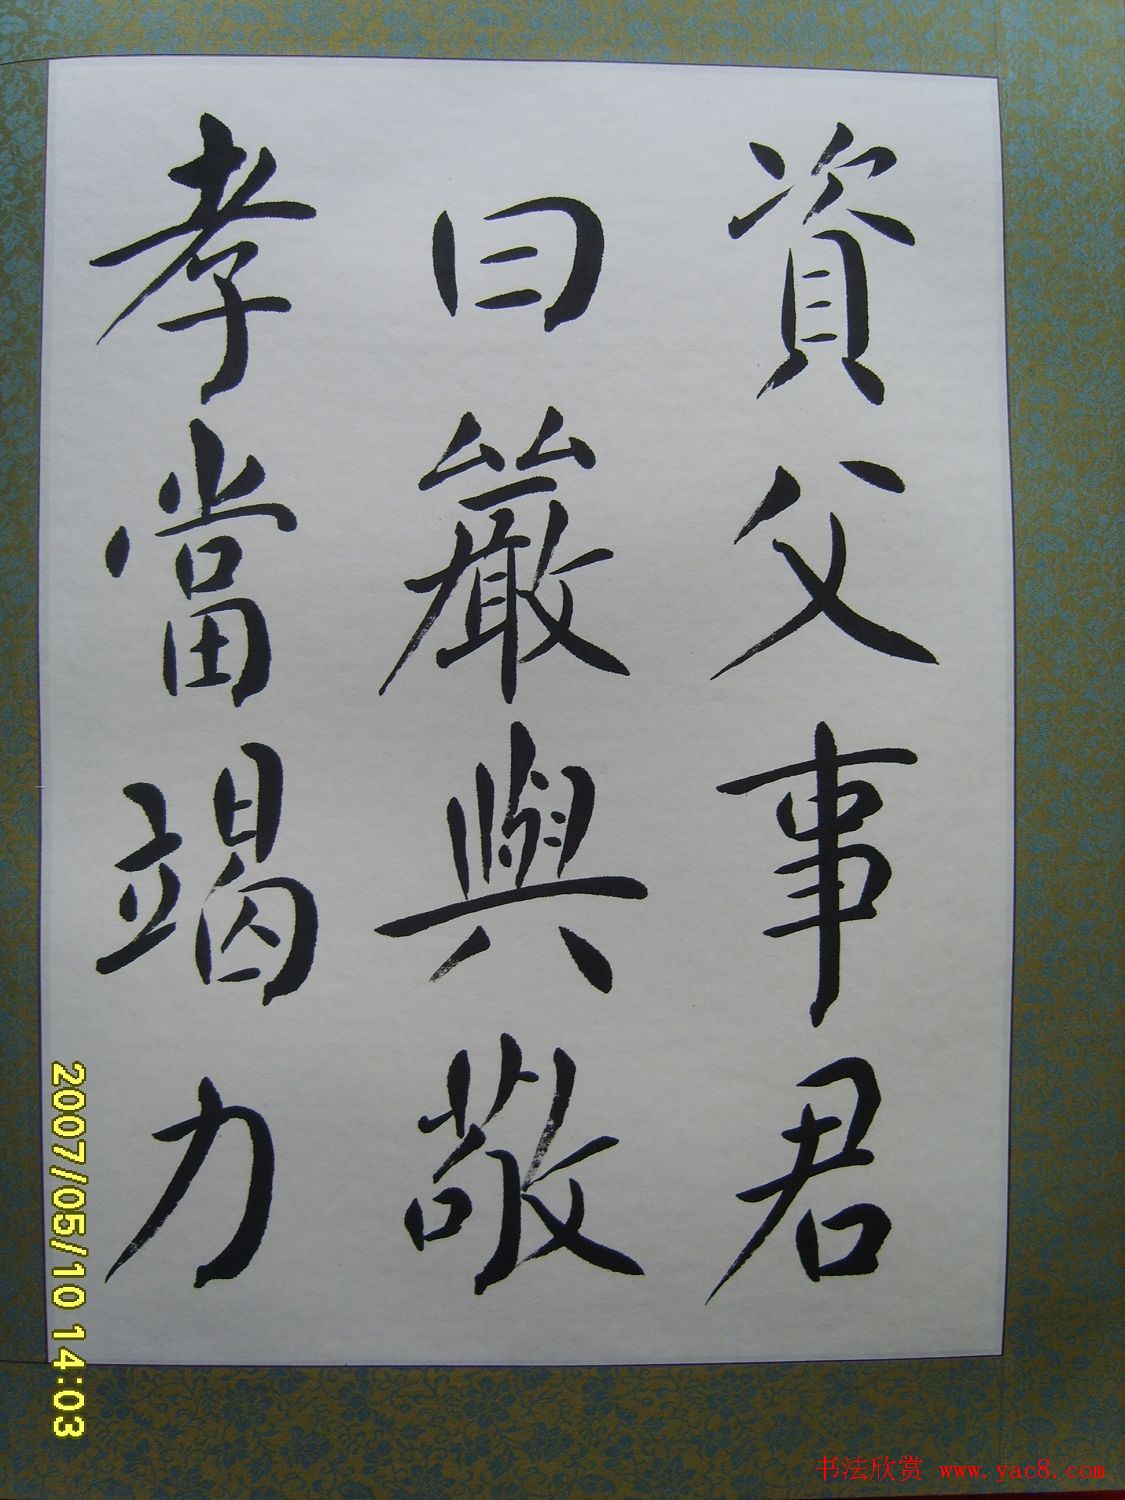 資父事君
曰嚴與敬
孝當竭力
2007/05/10 14:03
书法欣赏 www.yac8.com